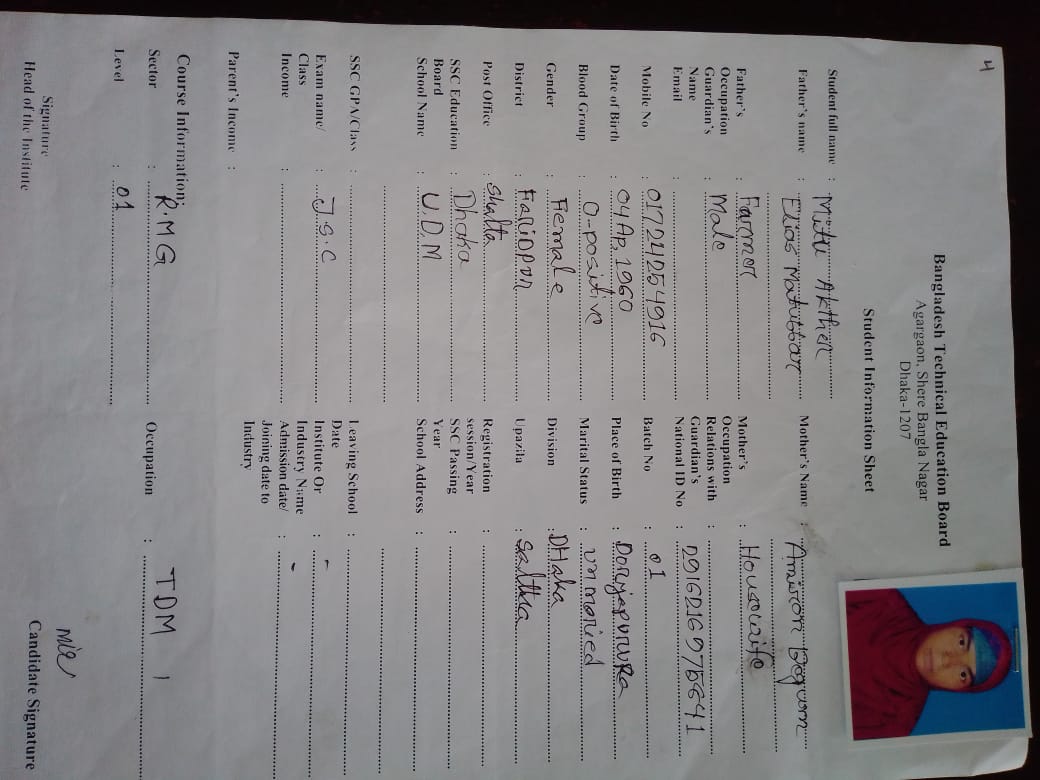 4
Bangladesh Technical Education Board
Agargaon, Shere Bangla Nagar
Dhaka-1207
Student Information Sheet
Student full name : Mitu Akther
Mother's Name : Begum
Father's name : Elias Matubbar
Father's Occupation : Farmer
Mother's Occupation : Housewife
Guardian's Name : Male
Relations with Guardian's :
Email :
National ID No : 2916216975641
Mobile No : 01724254916
Batch No : 01
Date of Birth : 04 Ap, 1960
Place of Birth :
Blood Group : O-positive
Marital Status : unmoried
Gender : Female
Division : DHaka
District : FaRiDpur
Upazila : Saltha
Post Office : Shalta
Registration session/Year :
SSC Education Board : Dhaka
SSC Passing Year :
School Name : U.D.M
School Address :
SSC GPA/Class :
Leaving School Date :
Exam name/ Class : J.S.C
Institute Or Industry Name : -
Income :
Admission date/ Joining date to Industry : -
Parent's Income :
Course Information:
Sector : R.M.G
Occupation : TDM 1
Level : 01
Signature
Head of the Institute
Candidate Signature